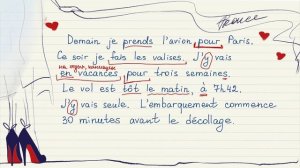 France
Demain je prends l'avion pour Paris.
Ce soir je fais les valises. J'y vais
на отдых, каникулы
en vacances pour trois semaines.
Le vol est tôt le matin, à 7h42.
J'y vais seule. L'embarquement commence
30 minutes avant le décollage.